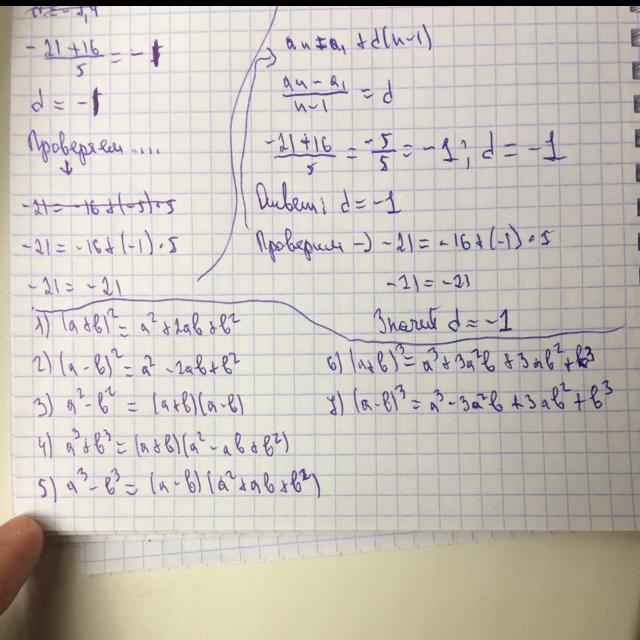 -21+16/5 = -1
d = -1
Проверяем ....
↓
-21 = -16+(-5)·5
-21 = -16+(-1)·5
-21 = -21
an = a₁ + d(n-1)
an - a₁/n-1 = d
-21+16/5 = -5/5 = -1; d = -1
Ответ: d = -1
Проверим → -21 = -16+(-1)·5
-21 = -21
Значит d = -1
1) (a+b)² = a² + 2ab + b²
2) (a-b)² = a² - 2ab + b²
3) a² - b² = (a+b)(a-b)
4) a³ + b³ = (a+b)(a² - ab + b²)
5) a³ - b³ = (a-b)(a² + ab + b²)
6) (a+b)³ = a³ + 3a²b + 3ab² + b³
7) (a-b)³ = a³ - 3a²b + 3ab² + b³